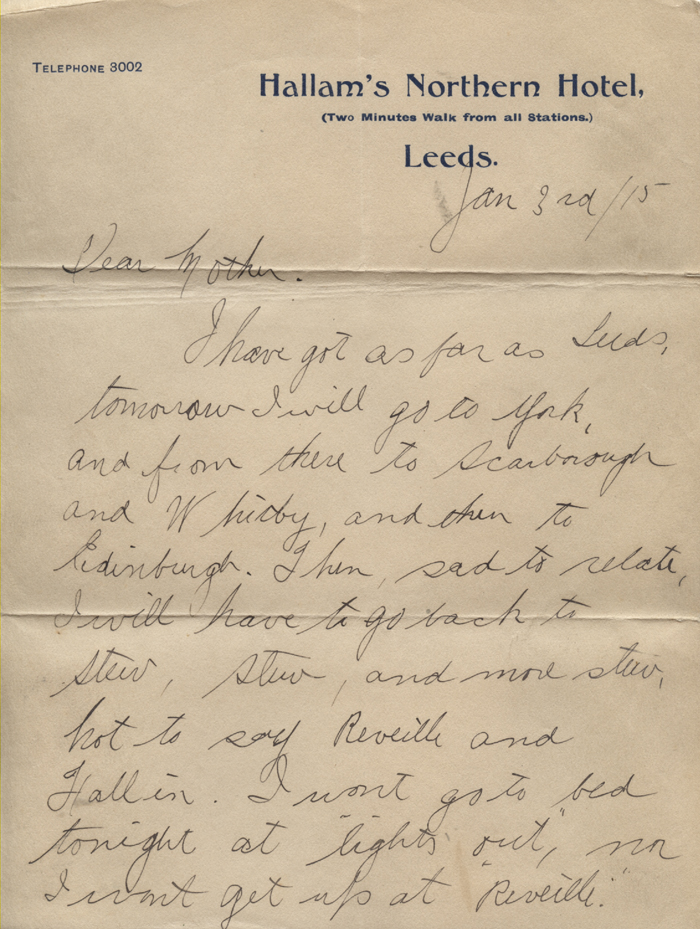 TELEPHONE 3002
Hallam's Northern Hotel,
(Two Minutes Walk from all Stations.)
Leeds.
Jan 3rd/15
Dear Mother.
I have got as far as Leeds,
tomorrow I will go to York,
and from there to Scarborough
and Whitby, and then to
Edinburgh. Then, sad to relate,
I will have to go back to
stew, stew, and more stew,
not to say Reveille and
Fall in. I wont go to bed
tonight at "lights out", nor
I wont get up at "Reveille."